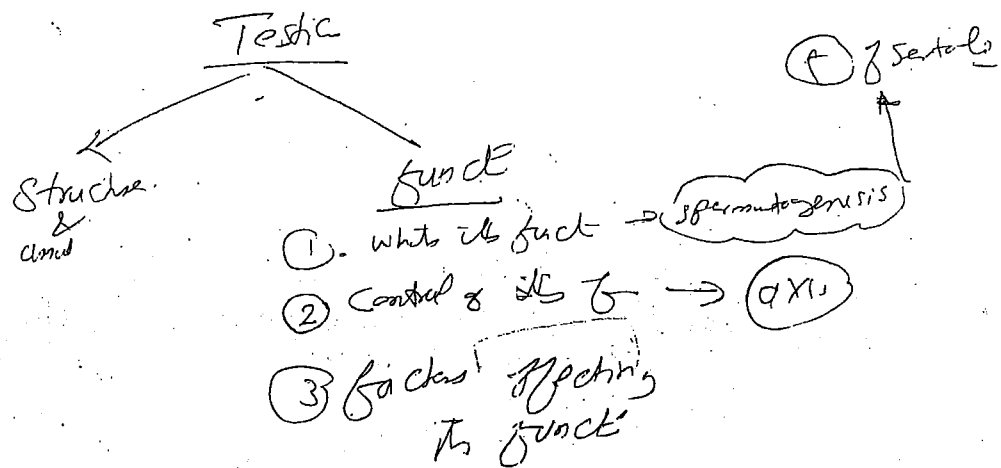 Testic
f of Sertoli
Structure
&
funct
1. Whats its funct → spermatogenesis
2 Control of its f → axis
3 factors affecting
its funct